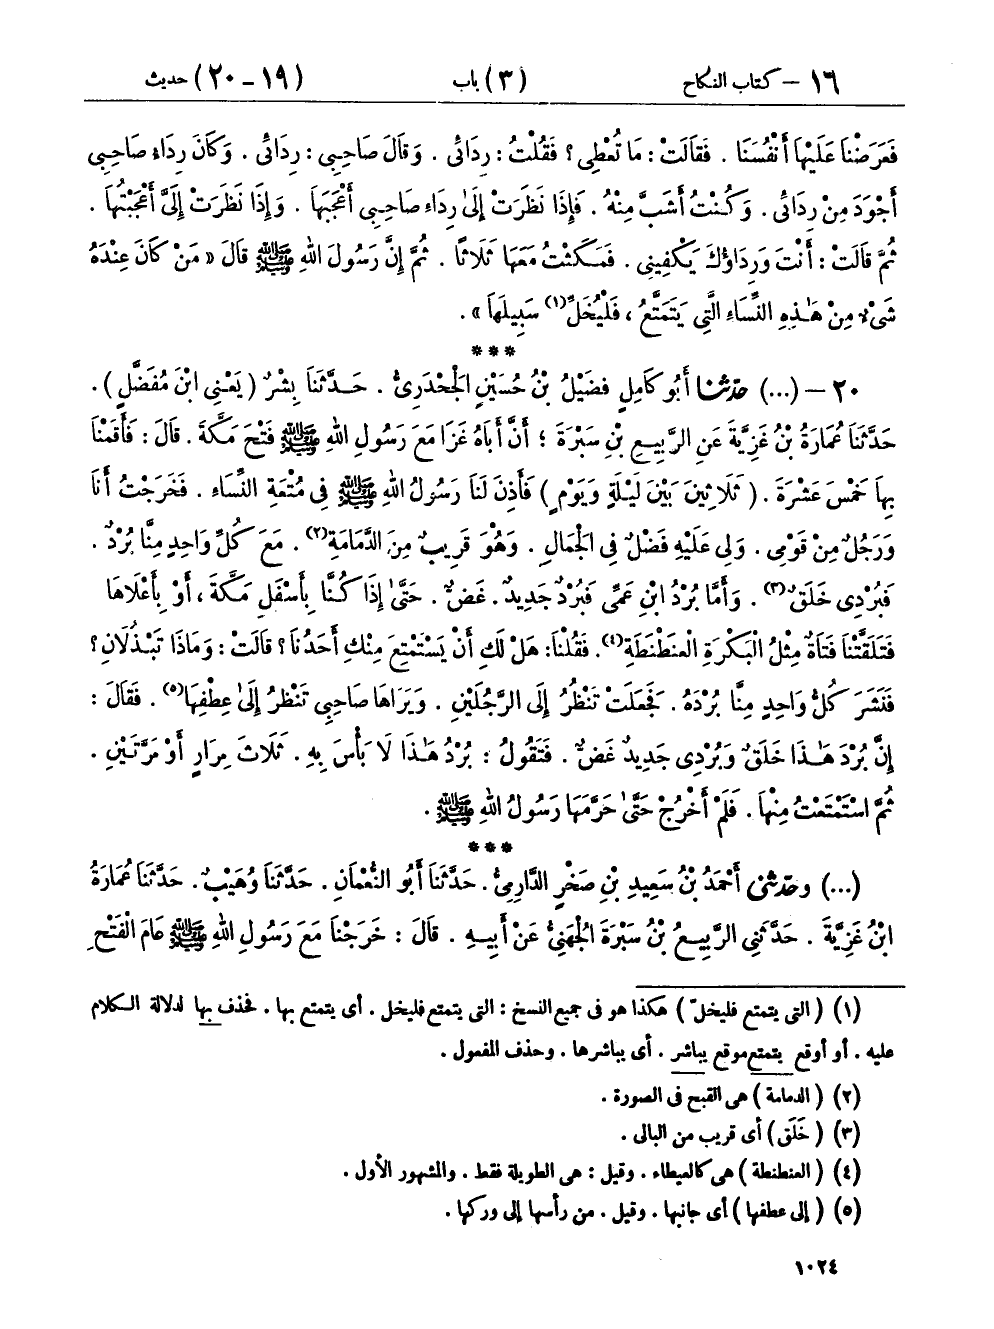 ١٦ – كتاب النكاح (٣) باب (١٩ – ٢٠) حديث
فَعَرَضْنَا عَلَيْهَا أَنْفُسَنَا . فَقَالَتْ : مَا تُعْطِى ؟ فَقُلْتُ : رِدَائِى . وَقَالَ صَاحِبِى : رِدَائِى . وَكَانَ رِدَاءُ صَاحِبِى
أَجْوَدَ مِنْ رِدَائِى . وَكُنْتُ أَشَبَّ مِنْهُ . فَإِذَا نَظَرَتْ إِلَىٰ رِدَاءِ صَاحِبِى أَعْجَبَهَا . وَإِذَا نَظَرَتْ إِلَىَّ أَعْجَبْتُهَا .
ثُمَّ قَالَتْ : أَنْتَ وَرِدَاؤُكَ يَكْفِينِى . فَمَكَثْتُ مَعَهَا ثَلَاثًا . ثُمَّ إِنَّ رَسُولَ اللهِ ﷺ قَالَ « مَنْ كَانَ عِنْدَهُ
شَىْءٌ مِنْ هَٰذِهِ النِّسَاءِ الَّتِى يَتَمَتَّعُ ، فَلْيُخَلِّ(١) سَبِيلَهَا » .
***
٢٠ – (...) حدّثنا أَبُو كَامِلٍ فُضَيْلُ بْنُ حُسَيْنٍ الْجَحْدَرِىُّ . حَدَّثَنَا بِشْرٌ ( يَعْنِى ابْنَ مُفَضَّلٍ ) .
حَدَّثَنَا عُمَارَةُ بْنُ غَزِيَّةَ عَنِ الرَّبِيعِ بْنِ سَبْرَةَ ؛ أَنَّ أَبَاهُ غَزَا مَعَ رَسُولِ اللهِ ﷺ فَتْحَ مَكَّةَ . قَالَ : فَأَقَمْنَا
بِهَا خَمْسَ عَشْرَةَ . ( ثَلَاثِينَ بَيْنَ لَيْلَةٍ وَيَوْمٍ ) فَأَذِنَ لَنَا رَسُولُ اللهِ ﷺ فِى مُتْعَةِ النِّسَاءِ . فَخَرَجْتُ أَنَا
وَرَجُلٌ مِنْ قَوْمِى . وَلِى عَلَيْهِ فَضْلٌ فِى الْجَمَالِ . وَهُوَ قَرِيبٌ مِنَ الدَّمَامَةِ(٢) . مَعَ كُلِّ وَاحِدٍ مِنَّا بُرْدٌ .
فَبُرْدِى خَلَقٌ(٣) . وَأَمَّا بُرْدُ ابْنِ عَمِّى فَبُرْدٌ جَدِيدٌ . غَضٌّ . حَتَّىٰ إِذَا كُنَّا بِأَسْفَلِ مَكَّةَ ، أَوْ بِأَعْلَاهَا
فَتَلَقَّتْنَا فَتَاةٌ مِثْلُ الْبَكْرَةِ الْعَنَطْنَطَةِ(٤) . فَقُلْنَا : هَلْ لَكِ أَنْ يَسْتَمْتِعَ مِنْكِ أَحَدُنَا ؟ قَالَتْ : وَمَاذَا تَبْذُلَانِ ؟
فَنَشَرَ كُلُّ وَاحِدٍ مِنَّا بُرْدَهُ . فَجَعَلَتْ تَنْظُرُ إِلَى الرَّجُلَيْنِ . وَيَرَاهَا صَاحِبِى تَنْظُرُ إِلَىٰ عِطْفِهَا(٥) . فَقَالَ :
إِنَّ بُرْدَ هَٰذَا خَلَقٌ وَبُرْدِى جَدِيدٌ غَضٌّ . فَتَقُولُ : بُرْدُ هَٰذَا لَا بَأْسَ بِهِ . ثَلَاثَ مِرَارٍ أَوْ مَرَّتَيْنِ .
ثُمَّ اسْتَمْتَعْتُ مِنْهَا . فَلَمْ أَخْرُجْ حَتَّىٰ حَرَّمَهَا رَسُولُ اللهِ ﷺ .
***
(...) وحدّثنى أَحْمَدُ بْنُ سَعِيدِ بْنِ صَخْرٍ الدَّارِمِىُّ . حَدَّثَنَا أَبُو النُّعْمَانِ . حَدَّثَنَا وُهَيْبٌ . حَدَّثَنَا عُمَارَةُ
ابْنُ غَزِيَّةَ . حَدَّثَنِى الرَّبِيعُ بْنُ سَبْرَةَ الْجُهَنِىُّ عَنْ أَبِيهِ . قَالَ : خَرَجْنَا مَعَ رَسُولِ اللهِ ﷺ عَامَ الْفَتْحِ
(١) ( التى يتمتع فليخلّ ) هكذا هو فى جميع النسخ : التى يتمتع فليخل . أى يتمتع بها . فحذف بها لدلالة الكلام
عليه . أو أوقع يتمتع موقع يباشر . أى يباشرها . وحذف المفعول .
(٢) ( الدمامة ) هى القبح فى الصورة .
(٣) ( خَلَق ) أى قريب من البالى .
(٤) ( العنطنطة ) هى كالعيطاء . وقيل : هى الطويلة فقط . والمشهور الأول .
(٥) ( إلى عطفها ) أى جانبها . وقيل . من رأسها إلى وركها .
١٠٢٤